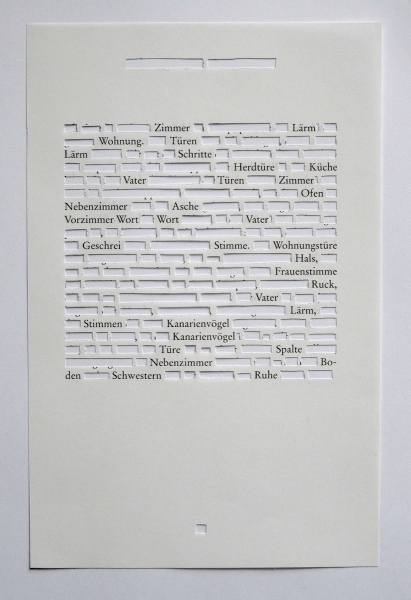 Zimmer Lärm
Wohnung. Türen
Lärm Schritte
Herdtüre Küche
Vater Türen Zimmer
Ofen
Nebenzimmer Asche
Vorzimmer Wort Wort Vater
Geschrei Stimme. Wohnungstüre
Hals,
Frauenstimme
Ruck,
Vater
Lärm,
Stimmen Kanarienvögel
Kanarienvögel
Türe Spalte
Nebenzimmer Bo-
den Schwestern Ruhe